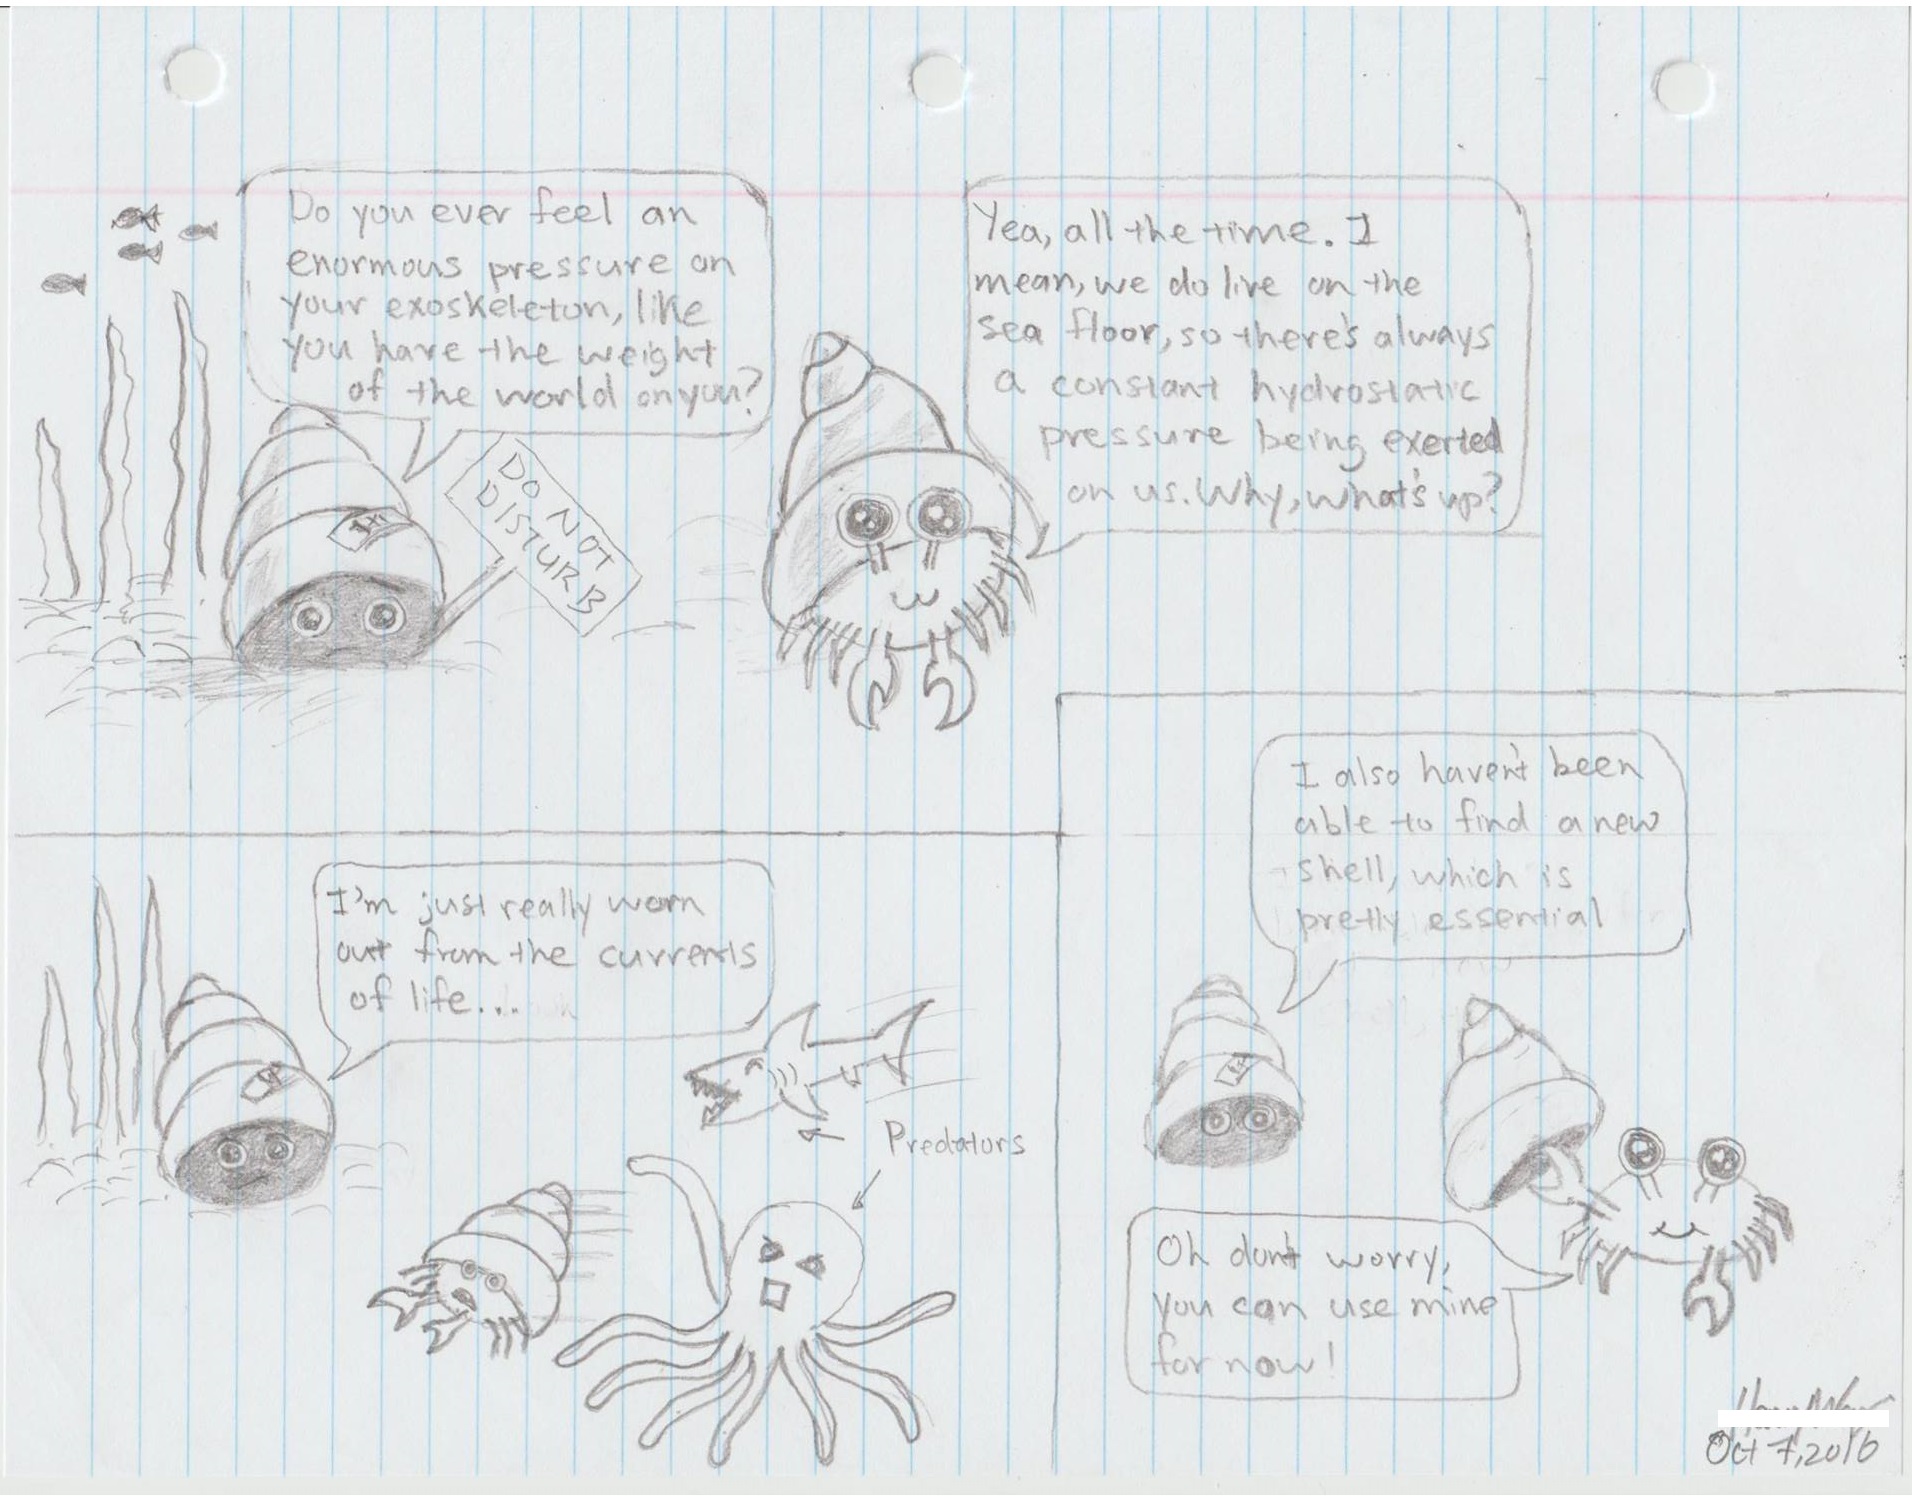 Do you ever feel an
enormous pressure on
your exoskeleton, like
you have the weight
of the world on you?
DO NOT
DISTURB
Yea, all the time. I
mean, we do live on the
sea floor, so there's always
a constant hydrostatic
pressure being exerted
on us. Why, what's up?
I'm just really worn
out from the currents
of life...
Predators
I also haven't been
able to find a new
shell, which is
pretty essential
Oh don't worry,
you can use mine
for now!
Oct 7, 2016